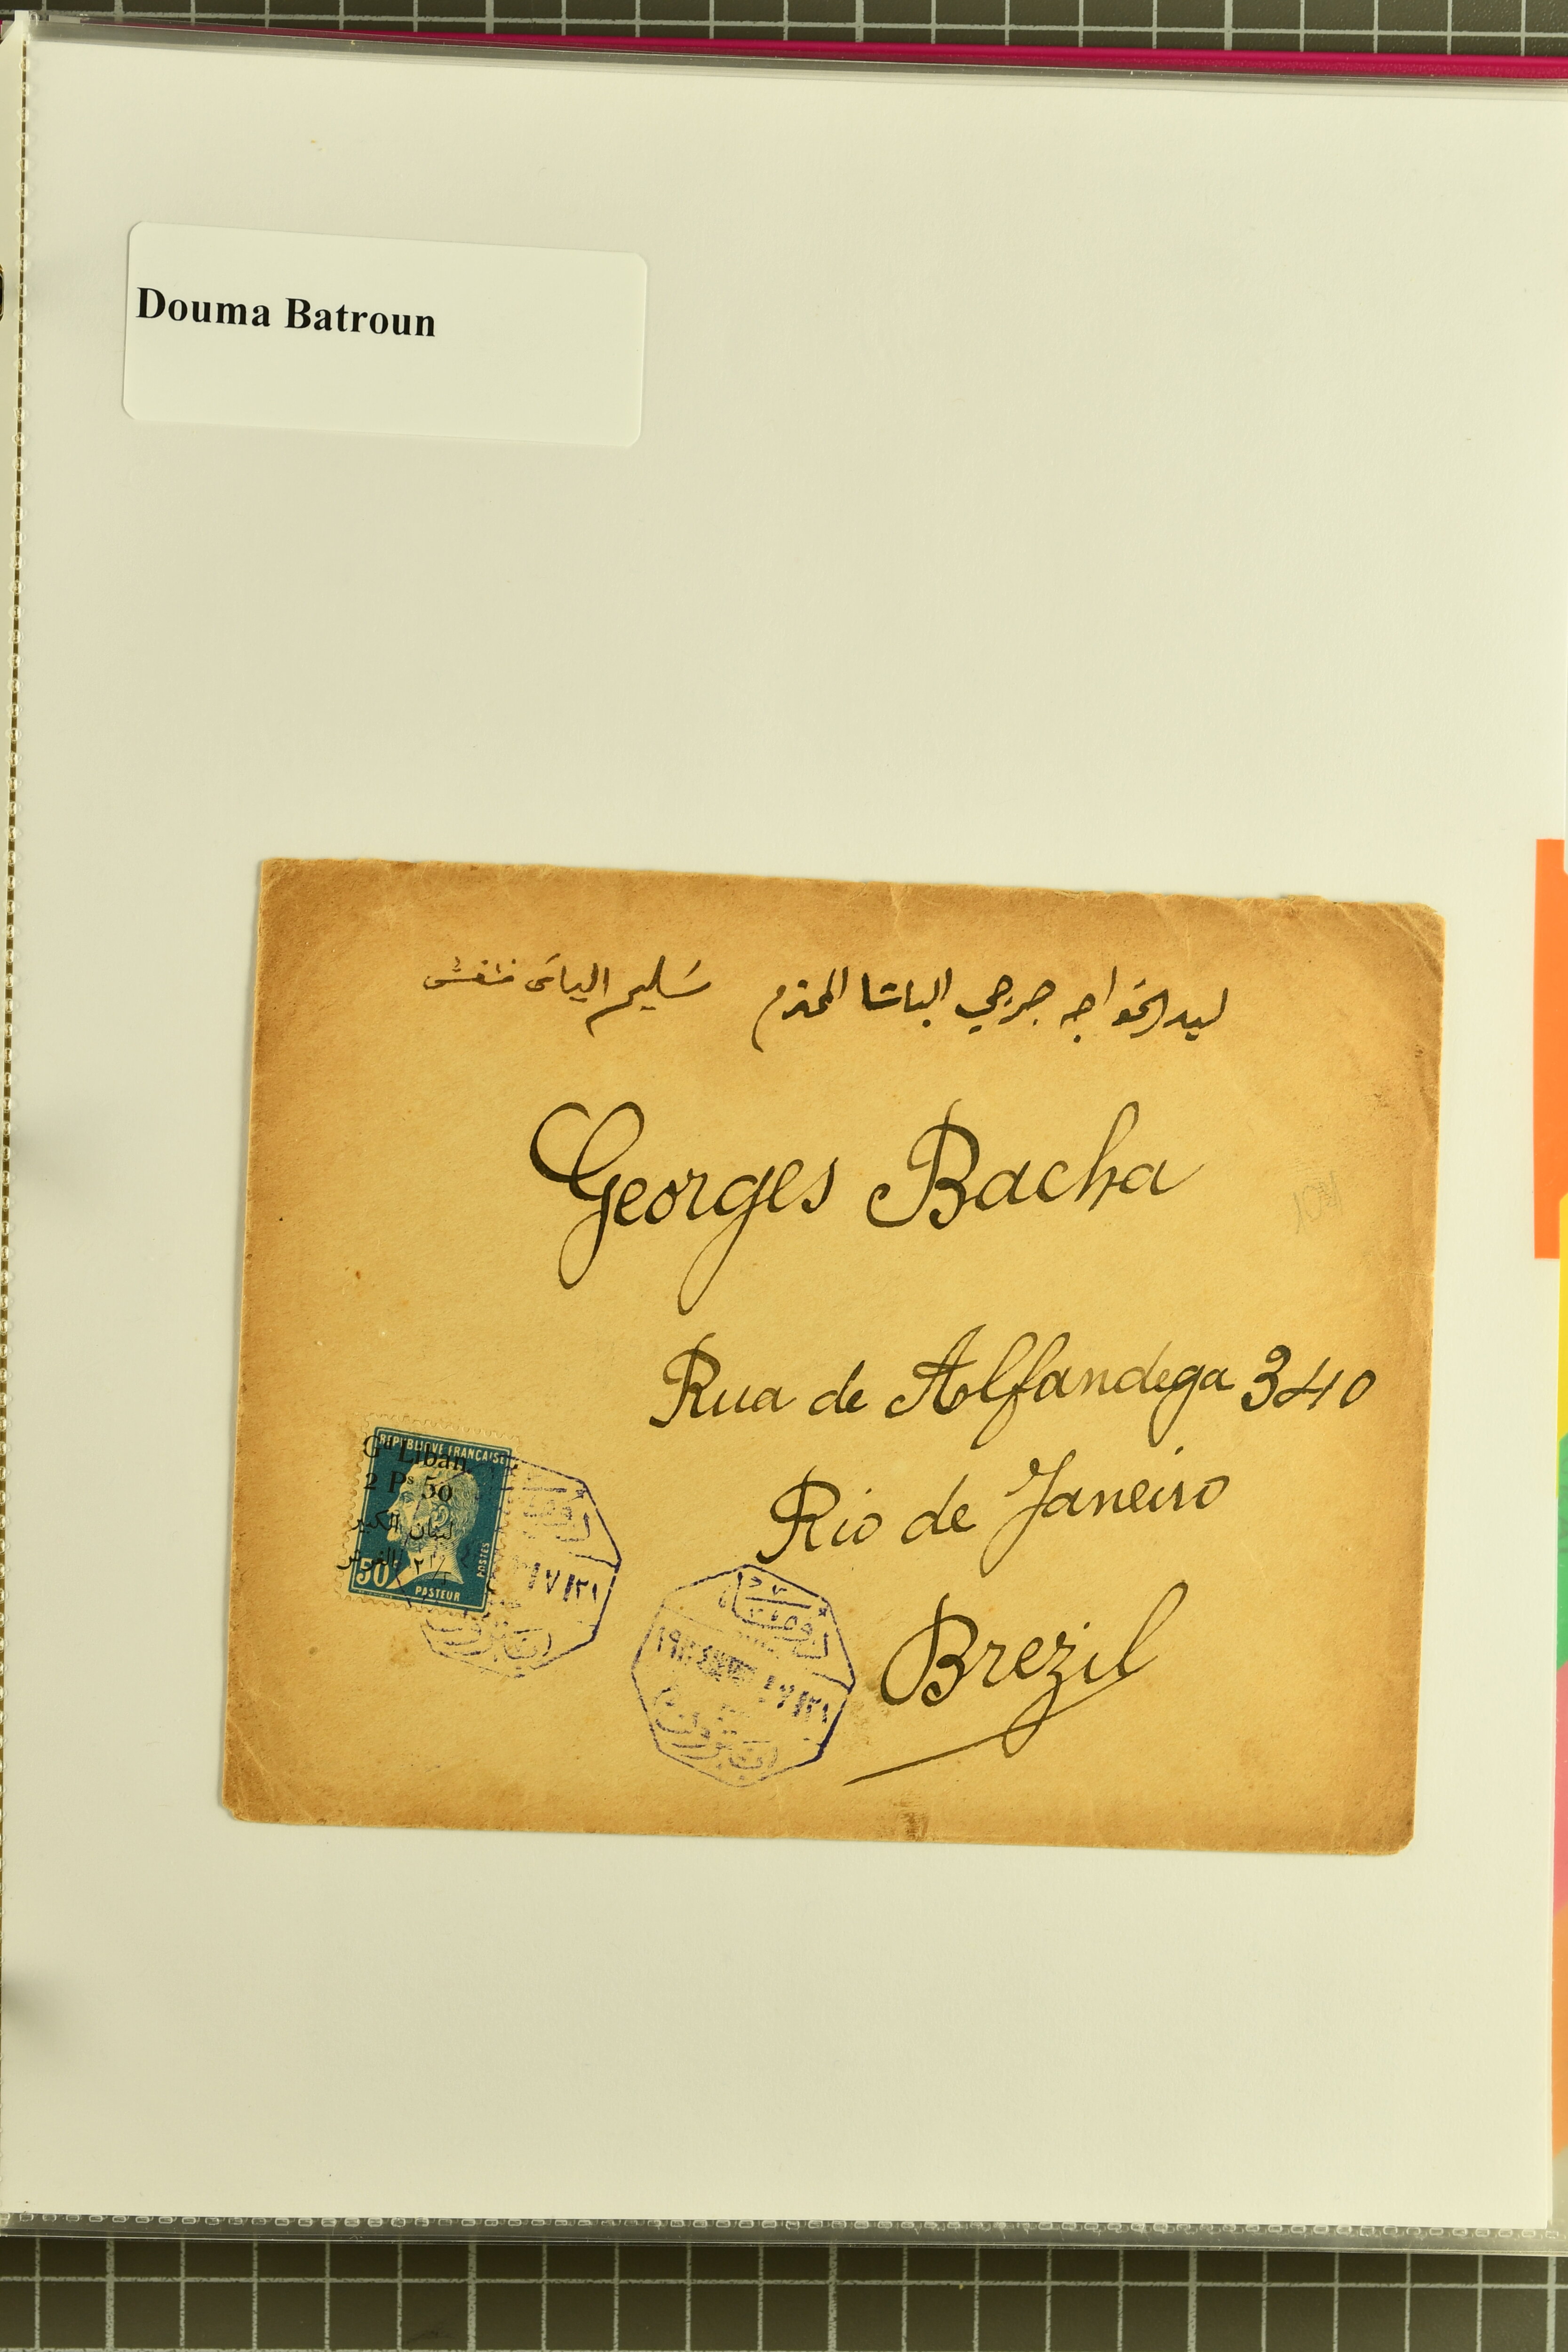 Douma Batroun
ليد الخواجه جرجي الباشا المحترم سليم الياس
Georges Bacha
Rua de Alfandega 340
Rio de Janeiro
Brezil
REPUBLIQUE FRANCAISE
Gd Liban
2 Ps 50
لبنان الكبير
50
POSTES
PASTEUR